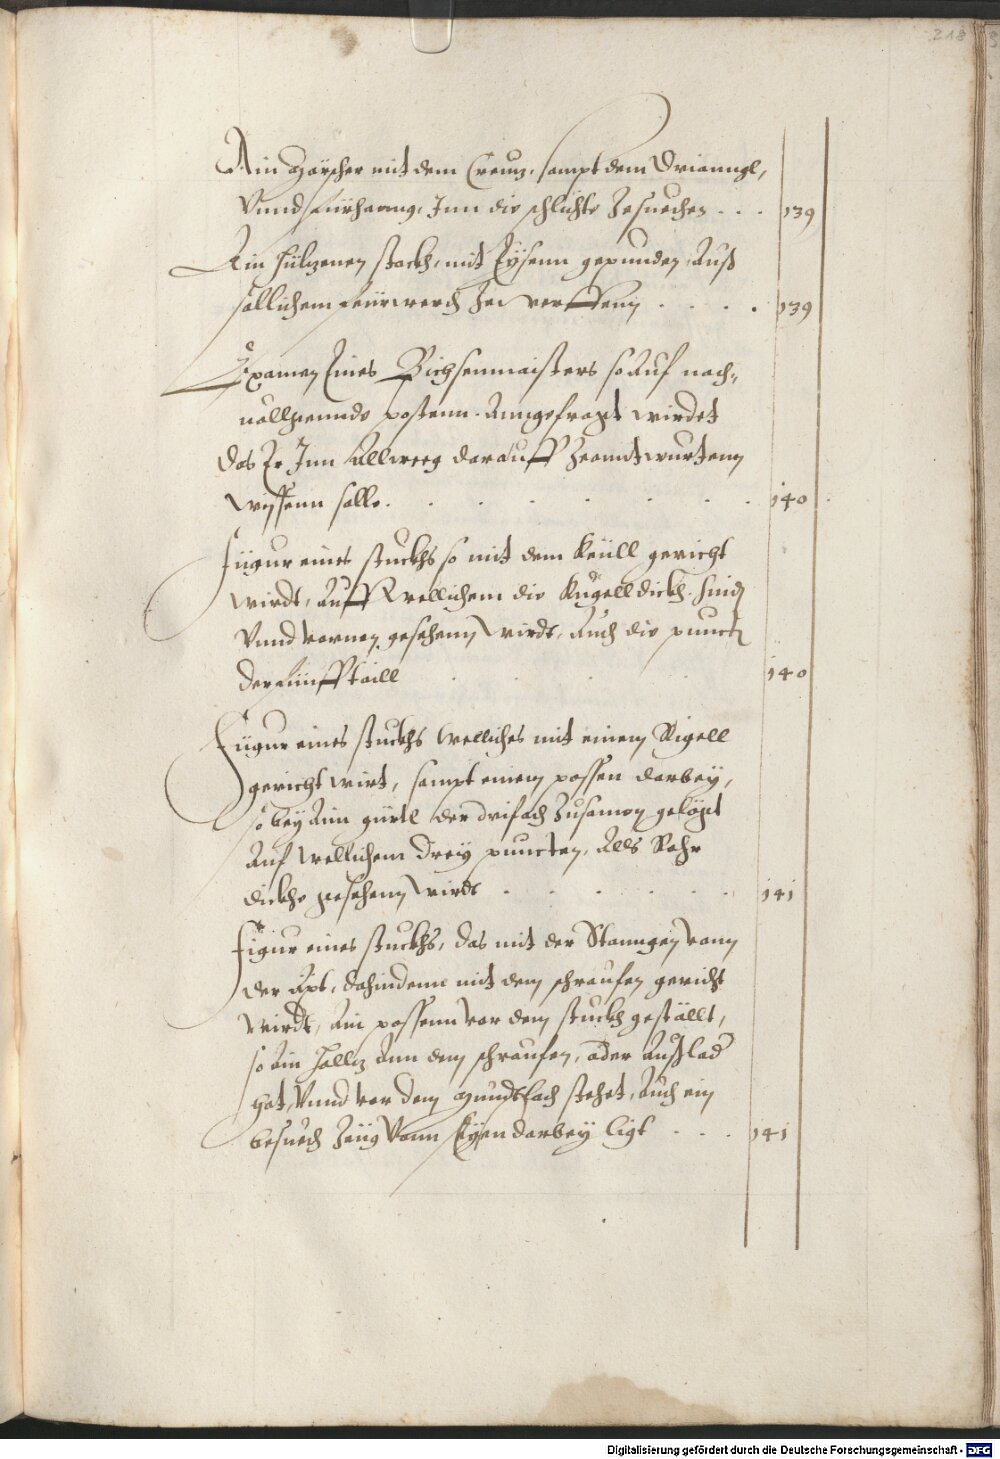 218
Ain Mörscher mit dem Creuz, sampt dem Drianngl,
Vnnd Fürhanng, Inn die schlichte Zesuechen . . . 139
Ain hülzenen stockh, mit Eÿsenn gepunden, Auß
söllichem feürwerch Ze werffenn . . . . 139
Examen Eines Bichsenmaisters so Auf nach-
uollgennde posten. Anngefragt wirdet
das Er Inn Allweeg darauff Zeanntwurten
wissenn solle . . . . . . . 140
Figur eines stuckhs so mit dem Keüll gericht
wirdt, Auff Wellichem die Kugelldickh, hinden
Vnnd vornen gesehenn wirdt, Auch die punct
der Fünff taill . . . . 140
Figur eines stuckhs Welliches mit einem Rigell
gericht wirt, sampt einem possen darbeÿ,
so beÿ Ain gürtl der drifach Zusamen gelögt
Auf Wellichem Dreÿ puncten, Alls Rohr
dickhe gesehenn wirdt . . . . . . 141
Figur eines stuckhs, das mit der Stanngen vonn
der Axt, dahindenn mit dem schraufen gericht
wirdt, Ain possenn vor dem stuckh gestöllt,
so Ain holltz Ann dem schraufen, oder Außlad
hat, Vnnd vor dem Mundtloch stehet, Auch ein
besuech Zeüg Vonn Eÿsen darbeÿ ligt . . . 141
Digitalisierung gefördert durch die Deutsche Forschungsgemeinschaft - DFG